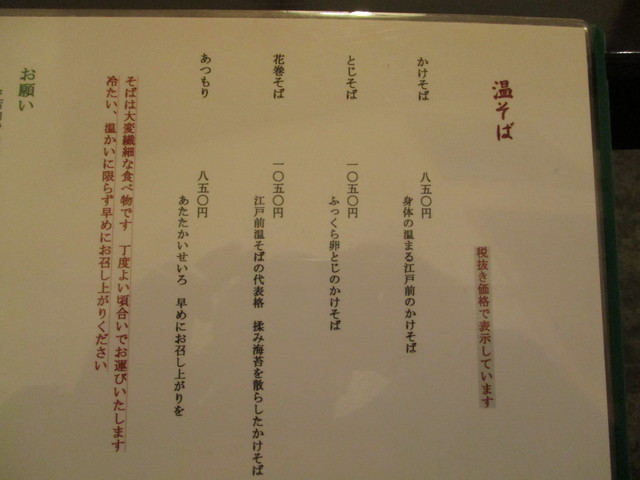 温そば
税抜き価格で表示しています
かけそば 八五〇円
身体の温まる江戸前のかけそば
とじそば 一〇五〇円
ふっくら卵とじのかけそば
花巻そば 一〇五〇円
江戸前温そばの代表格 揉み海苔を散らしたかけそば
あつもり 八五〇円
あたたかいせいろ 早めにお召し上がりを
そばは大変繊細な食べ物です 丁度よい頃合いでお運びいたします
冷たい、温かいに限らず早めにお召し上がりください
お願い